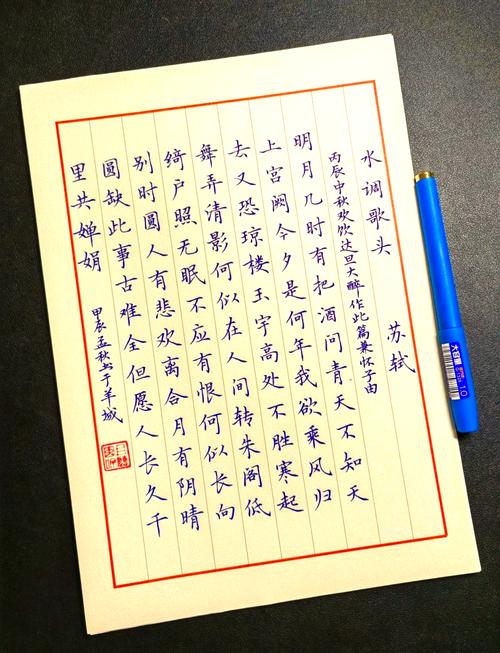 水调歌头 苏轼
丙辰中秋欢饮达旦大醉作此篇兼怀子由
明月几时有把酒问青天不知天
上宫阙今夕是何年我欲乘风归
去又恐琼楼玉宇高处不胜寒起
舞弄清影何似在人间转朱阁低
绮户照无眠不应有恨何似长向
别时圆人有悲欢离合月有阴晴
圆缺此事古难全但愿人长久千
里共婵娟
甲辰孟秋书于羊城
大容量
1.0